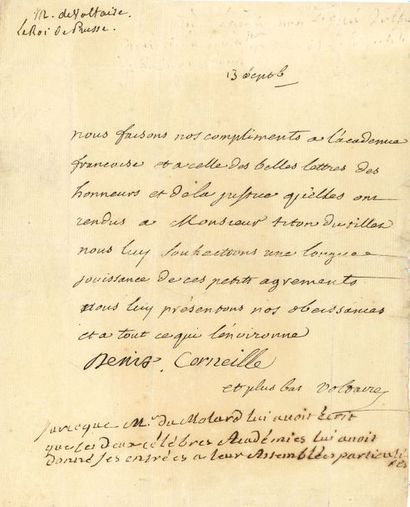 M. de Voltaire.
Le Roi de Prusse.
13 decemb
nous faisons nos compliments a l'academie
francoise et a celle des belles lettres des
honneurs et de la justice qu'elles ont
rendus a Monsieur titon du tillet
nous luy souhettons une longue
jouissance de ces petits agrements
nous luy présentons nos obeissances
et a tout ce qui l'environne
Denis. Corneille
et plus bas Voltaire
parceque Mr. du Molard lui avoit Ecrit
que les deux célébres Académies lui avoit
donné ses entrées a leur Assemblées particuli
res